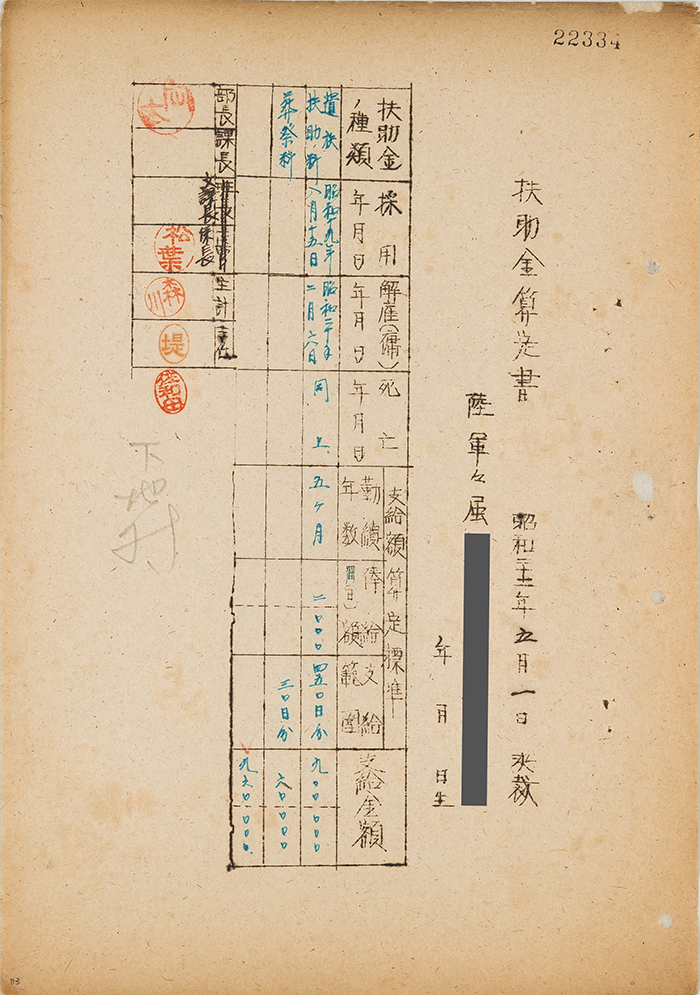 22334
扶助金算定書
昭和二十一年五月一日 決裁
陸軍々属
年 月 日生
扶助金ノ種類
採用年月日
解雇(傭)年月日
死亡年月日
支給額算定標準
勤續年数
俸給(日)額
支給範囲
支給金額
遺族扶助料
昭和十九年八月十五日
昭和二十年二月六日
同上
五ヶ月
二〇〇〇
四五〇日分
九〇〇〇〇〇
葬祭料
三〇日分
六〇〇〇〇
九六〇〇〇〇
部長
課長
班長
支課長
係長
生計
主任
松葉
森川
堤
佐和田
下地村
93